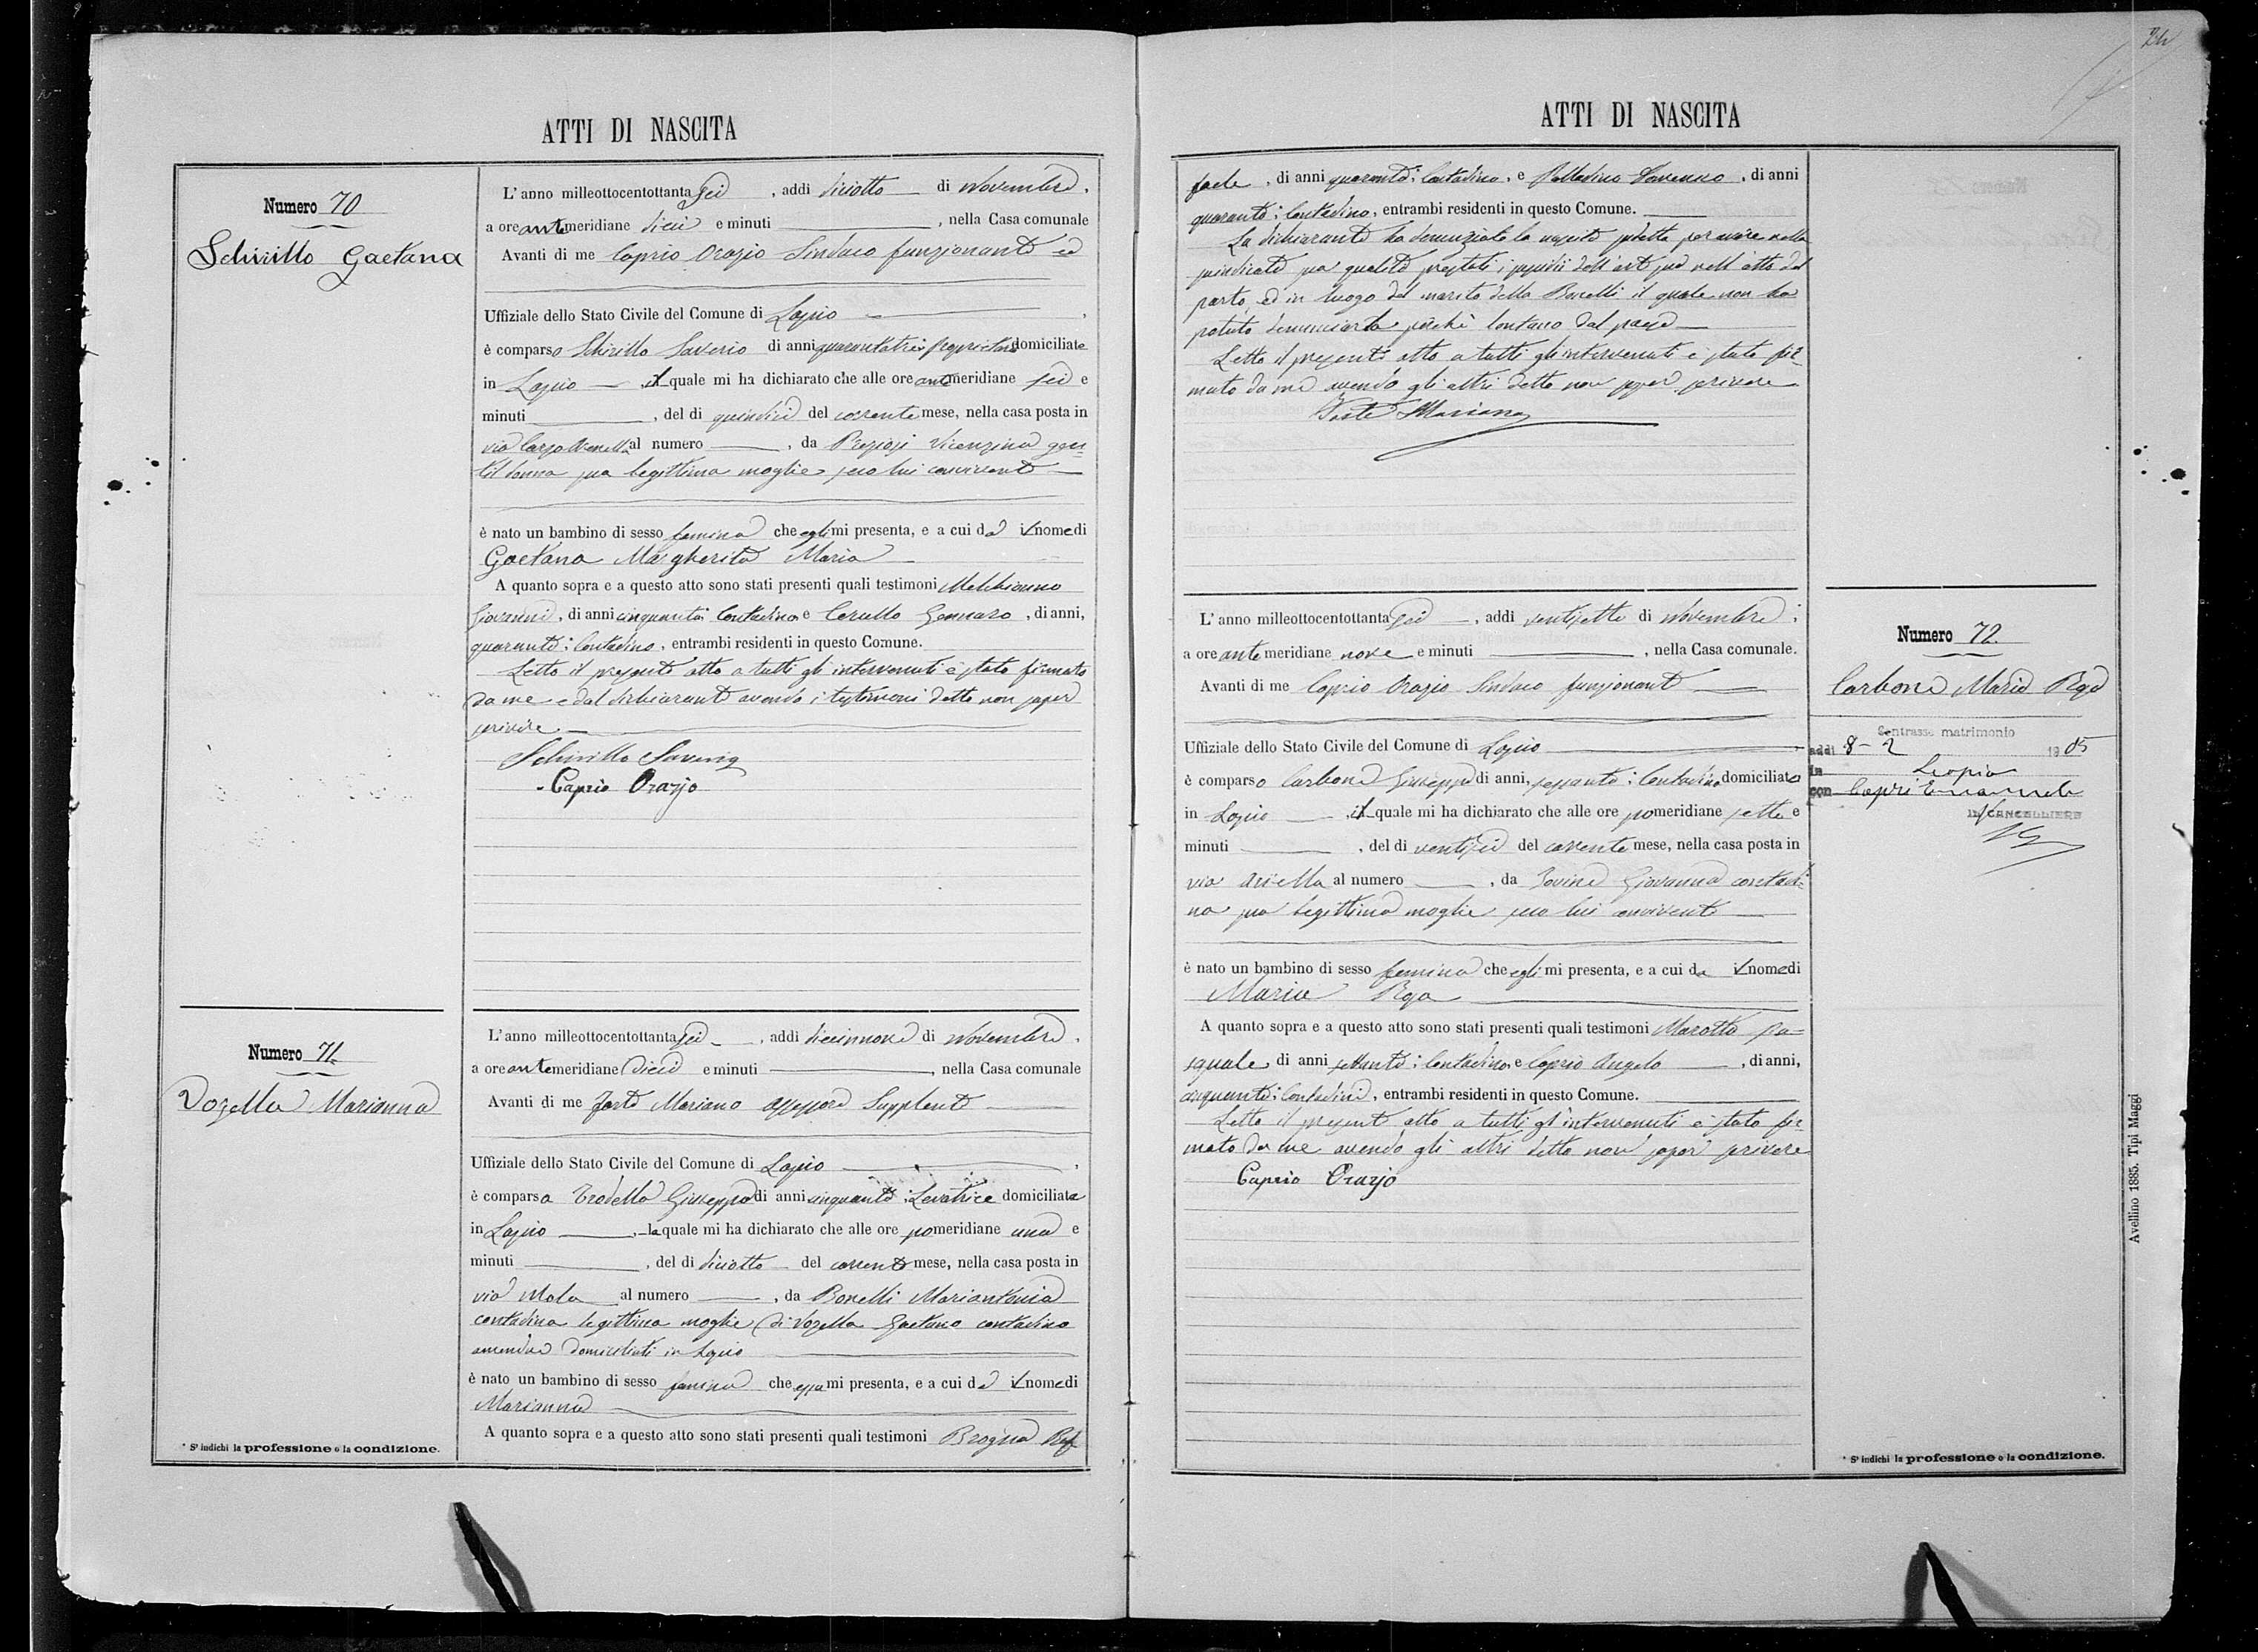 ATTI DI NASCITA
Numero 70
Schirillo Gaetana
L' anno milleottocentottanta sei, addi diciotto di Novembre,
a ore antemeridiane dieci e minuti, nella Casa comunale
Avanti di me Caprio Orazio Sindaco funzionante ed
Uffiziale dello Stato Civile del Comune di Lapio
è comparso Schirillo Saverio di anni quarantatrè proprietario domiciliato
in Lapio, il quale mi ha dichiarato che alle ore antemeridiane sei e
minuti, del di quindici del corrente mese, nella casa posta in
via Largo al numero, da Preziosi Vicenzina gen=
til donna sua legittima moglie seco lui convivente
è nato un bambino di sesso femina che egli mi presenta, e a cui dà il nome di
Gaetana Margherita Maria
A quanto sopra e a questo atto sono stati presenti quali testimoni Melchionno
Giovanni, di anni cinquanta; Contadino e Cerullo Gennaro, di anni,
quaranta; Contadino, entrambi residenti in questo Comune.
Letto il presente atto a tutti gli intervenuti è stato firmato
da me e dal dichiarante avendo i testimoni detto non saper
scrivere.
Schirillo Saverio
Caprio Orazio
Numero 71
Vozella Marianna
L'anno milleottocentottanta sei, addi diciannove di Novembre,
a ore antemeridiane dieci e minuti, nella Casa comunale
Avanti di me Forte Mariano Assessore Supplente
Uffiziale dello Stato Civile del Comune di Lapio
è comparsa Trodella Giuseppa di anni cinquanta; Levatrice domiciliata
in Lapio, la quale mi ha dichiarato che alle ore pomeridiane una e
minuti, del di diciotto del corrente mese, nella casa posta in
via Mola al numero, da Bonelli Mariantonia
contadina legittima moglie di Vozella Gaetano contadino
amendue domiciliati in Lapio
è nato un bambino di sesso femina che essa mi presenta, e a cui dà il nome di
Marianna
A quanto sopra e a questo atto sono stati presenti quali testimoni Brogna Raf=
* Si indichi la professione o la condizione.
24
ATTI DI NASCITA
faele, di anni quaranta; Contadino, e Palladino, di anni
quaranta; Contadino, entrambi residenti in questo Comune.
La dichiarante ha denunziato la nascita suddetta per avere nella
suindicata sua qualità prestati i sussidii dell'arte sua nell'atto del
parto, ed in luogo del marito della Bonelli il quale non ha
potuto denunciarla perchè lontano dal paese
Letto il presente atto a tutti gli intervenuti è stato fir=
mato da me avendo gli altri detto non saper scrivere
Forte Mariano
L' anno milleottocentottanta sei, addi ventisette di Novembre;
a ore antemeridiane nove e minuti, nella Casa comunale.
Avanti di me Caprio Orazio Sindaco funzionante
Uffiziale dello Stato Civile del Comune di Lapio
è comparso Carbone Giuseppe di anni, sessanta; Contadino domiciliato
in Lapio, il quale mi ha dichiarato che alle ore pomeridiane sette e
minuti, del di ventisei del corrente mese, nella casa posta in
via Ariella al numero, da Iovine Giovanna contadi=
na sua legittima moglie seco lui convivente
è nato un bambino di sesso femina che egli mi presenta, e a cui da il nome di
Maria Rosa
A quanto sopra e a questo atto sono stati presenti quali testimoni Marotta Pa=
squale, di anni settanta; Contadino e Caprio Angelo, di anni,
cinquanta; Contadini, entrambi residenti in questo Comune.
Letto il presente atto a tutti gl'intervenuti è stato fir=
mato da me avendo gli altri detto non saper scrivere
Caprio Orazio
Numero 72
Carbone Maria Rosa
Contrasse matrimonio
addi 8-2 1905
in Lapio
con Capri Emanuele
IL CANCELLIERE
* Si indichi la professione o la condizione.
Avellino 1885. Tipi Maggi